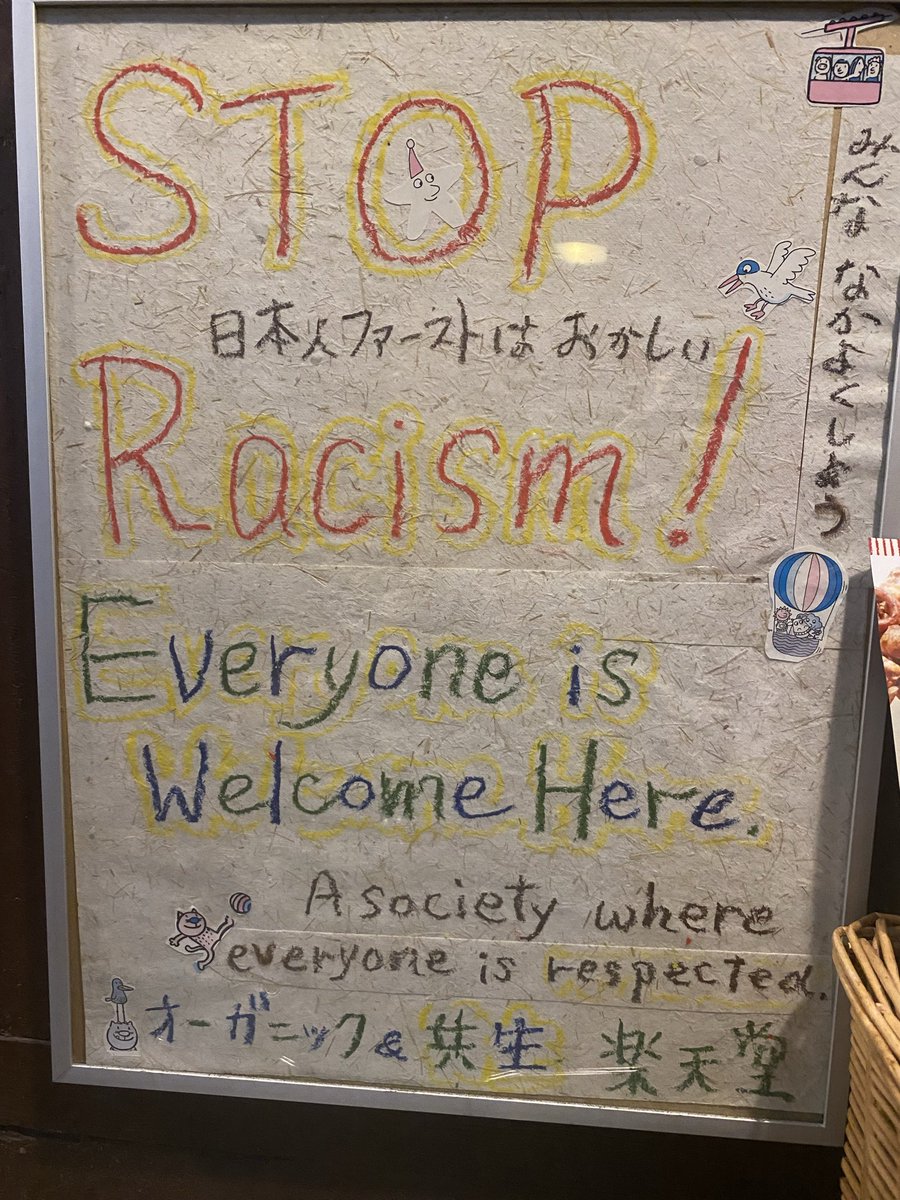 STOP
日本人ファーストは おかしい
Racism!
みんな なかよくしよう
Everyone is
Welcome Here.
A society where
everyone is respected.
オーガニック& 共生 楽天堂